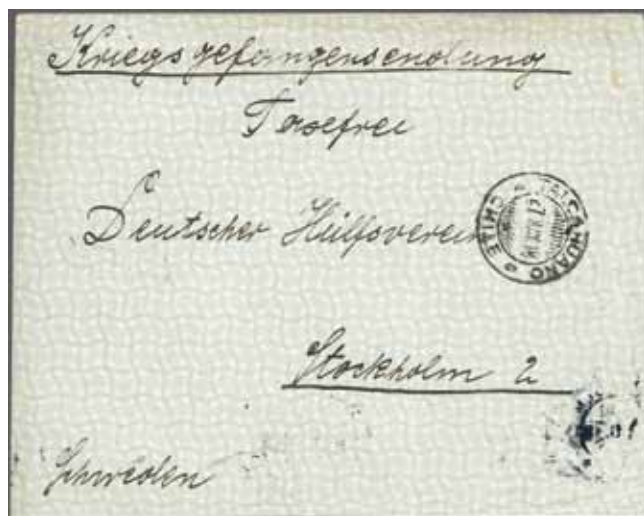 Kriegsgefangensendung
Taxefrei
Deutscher Hülfsverein
TALCAHUANO
CHILE
Stockholm 2
Schweden